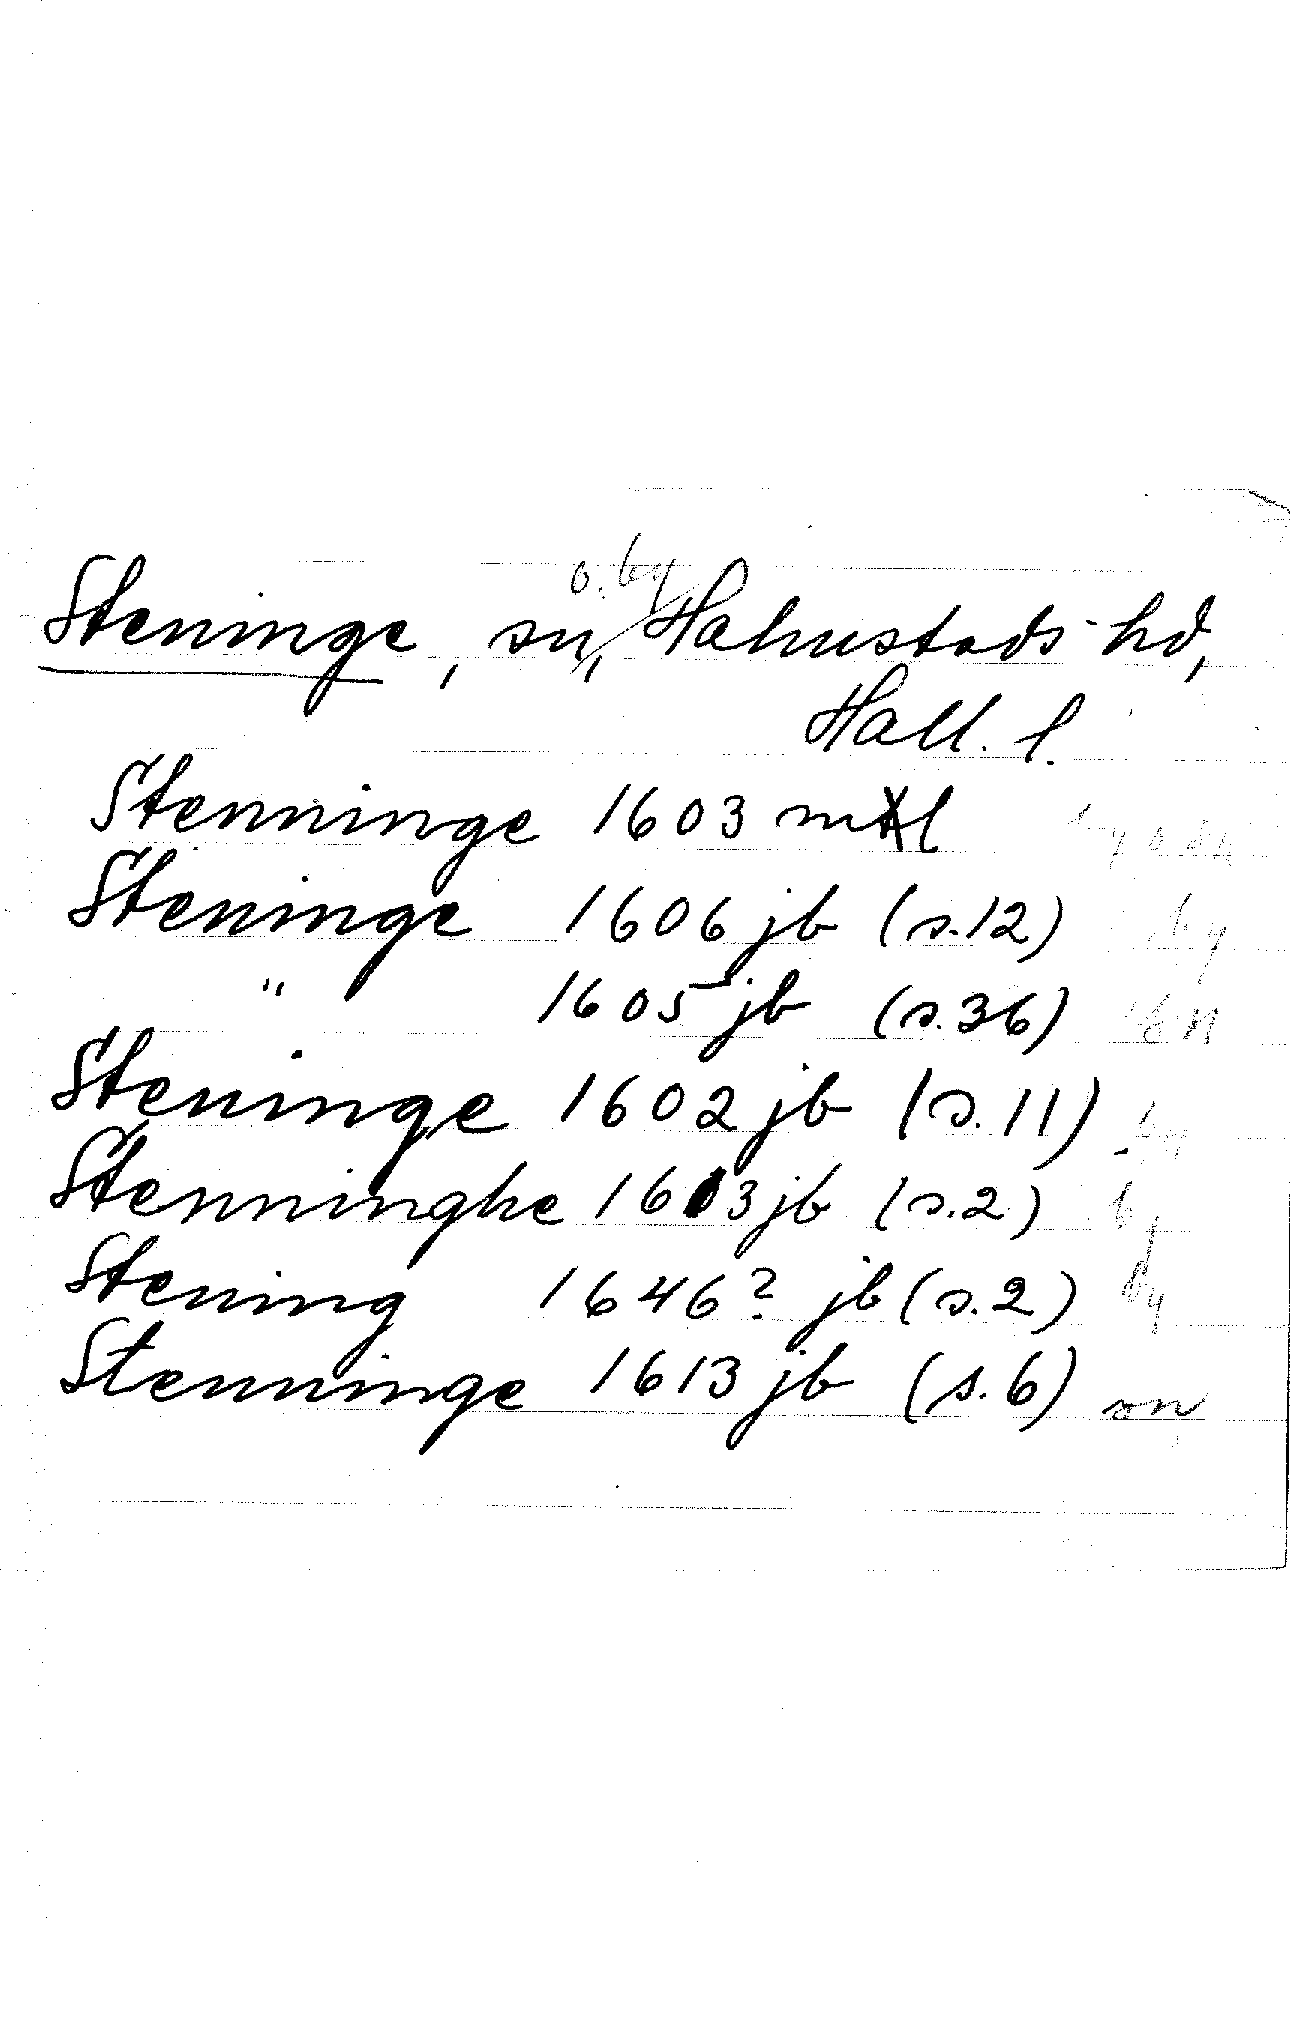 Steninge, sn, o. by Halmstads hd,
Hall. l.
Stenninge 1603 mtl
Steninge 1606 jb (s.12) by
" 1605 jb (s.36)
Steninge 1602 jb (s.11) by
Stenninghe 1613 jb (s.2) by
Stening 1646? jb (s.2) by
Stenninge 1613 jb (s.6) sn